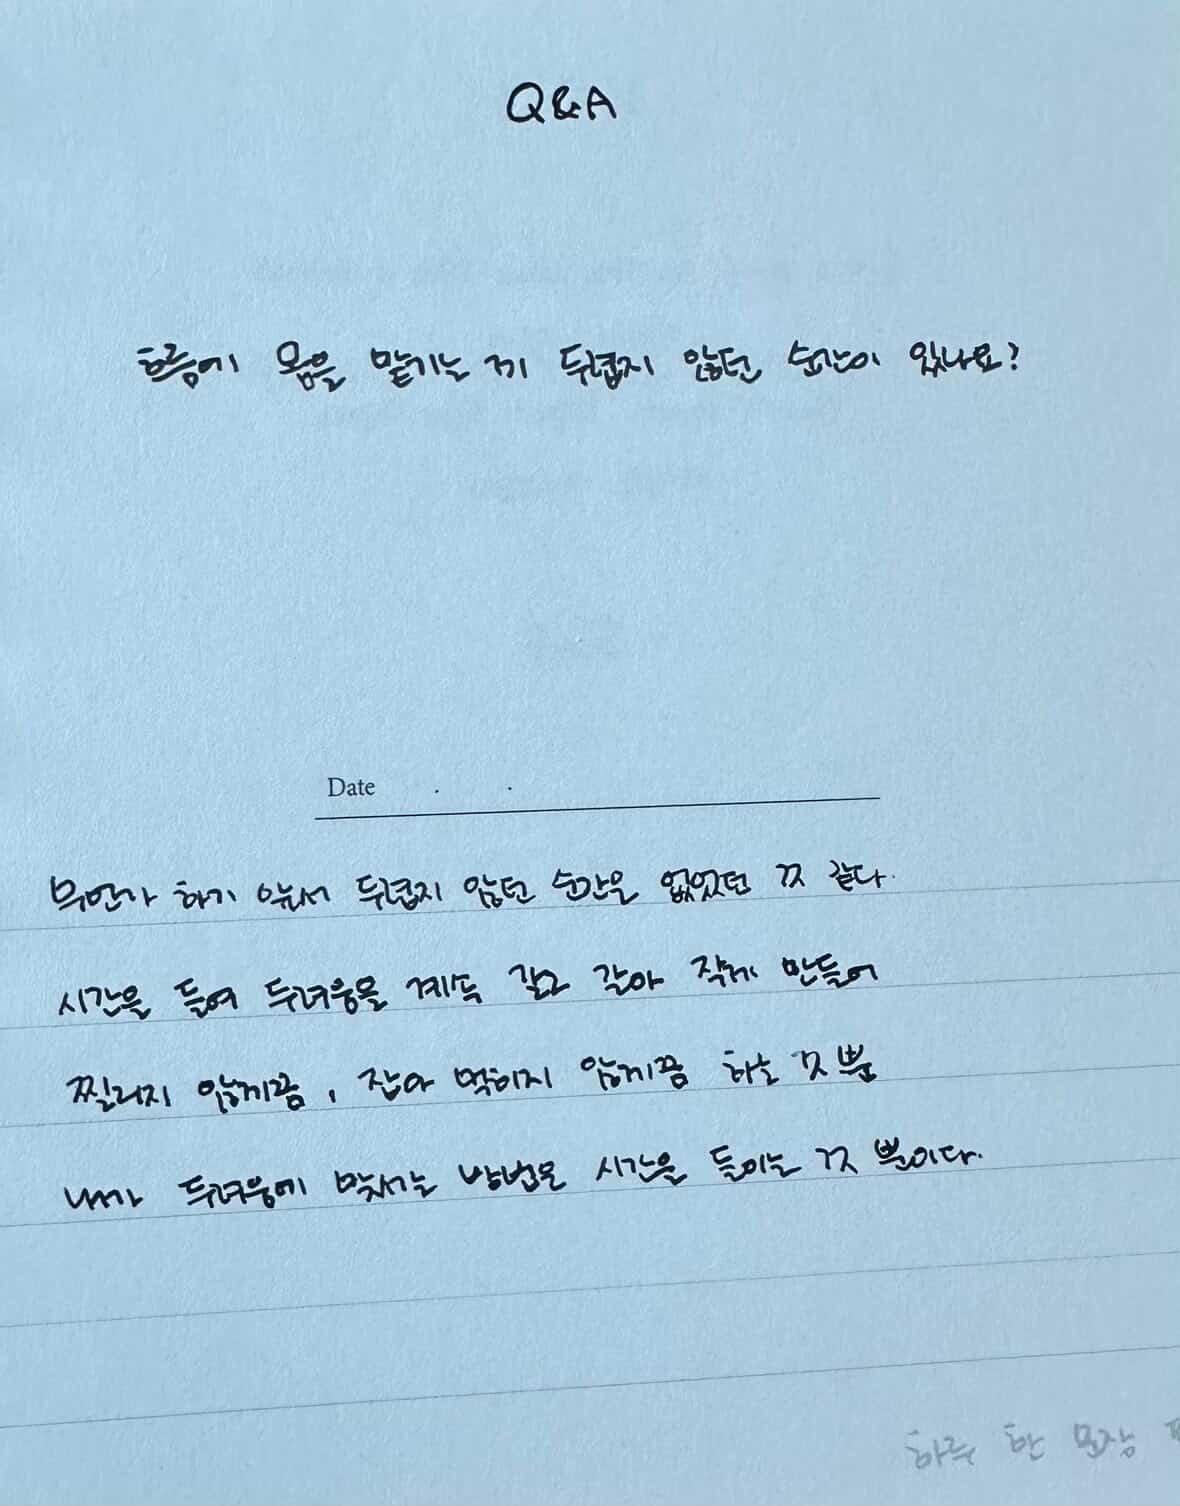 Q&A
흐름에 몸을 맡기는 게 두렵지 않던 순간이 있나요?
Date . .
무언가 하기 앞서 두렵지 않던 순간은 없었던 것 같다.
시간을 들여 두려움을 계속 갈고 갈아 작게 만들어
찔리지 않게끔, 잡아 먹히지 않게끔 하는 것 뿐
내가 두려움에 맞서는 방법은 시간을 들이는 것 뿐이다.
하루 한 문장